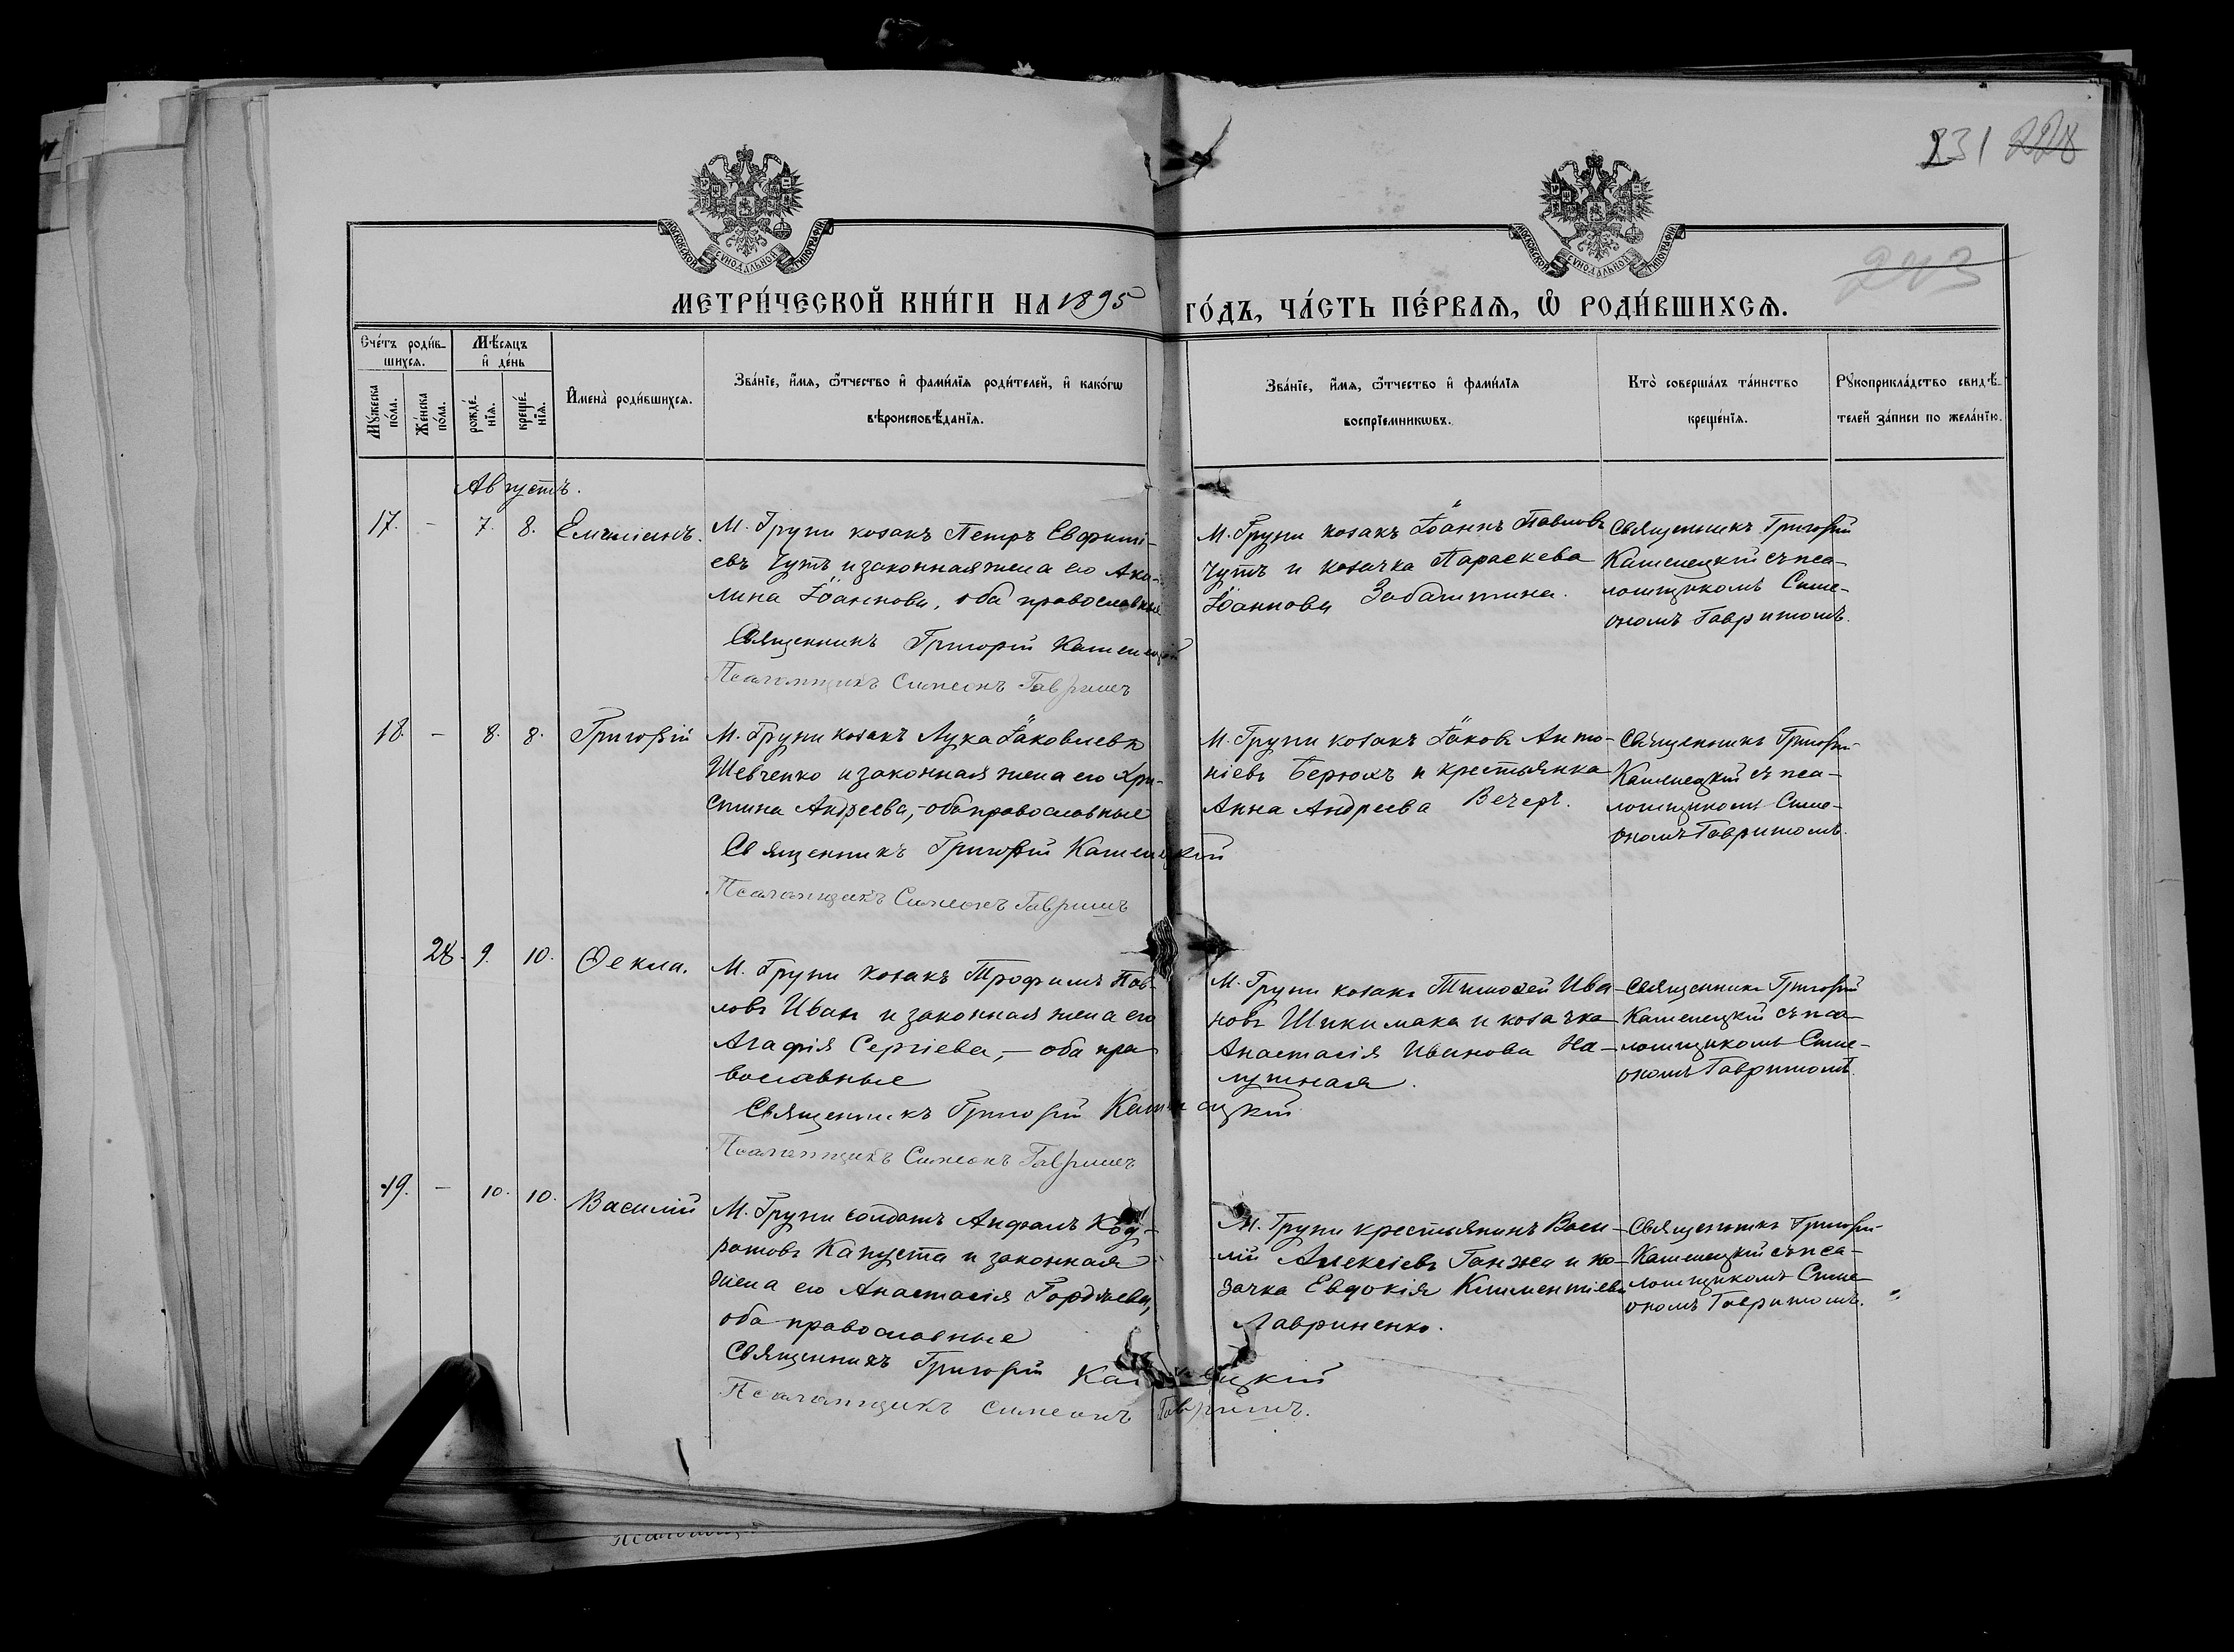 231 228
243
МОСКОВСКОЙ СѴНОДАЛЬНОЙ ТИПОГРАФІИ
МОСКОВСКОЙ СѴНОДАЛЬНОЙ ТИПОГРАФІИ
МЕТРИ́ЧЕСКОЙ КНИ́ГИ НА 1895 ГО́ДЪ, ЧА́СТЬ ПЕ́РВАѦ, Ѽ РОДИ́ВШИХСѦ.
Сче́тъ роди́в-
шихсѧ.
Мꙋ́жеска
по́ла.
Же́нска
по́ла.
Мѣ́сѧцъ
и҆ де́нь
рожде́-
нїѧ.
креще́-
нїѧ.
И҆мена̀ роди́вшихсѧ.
Зва́нїе, и҆́мѧ, ѻ҆́тчество и҆ фами́лїѧ роди́телей, и҆ како́гѡ
вѣроисповѣ́данїѧ.
Зва́нїе, и҆́мѧ, ѻ҆́тчество и҆ фами́лїѧ
воспрїе́мникѡвъ.
Кто̀ соверша́лъ та́инство
креще́нїѧ.
Рꙋкоприкла́дство свидѣ́-
телей за́писи по жела́нїю.
Августъ.
17. - 7. 8. Емиліанъ.
М. Груни козакъ Петръ Евфимі-
евъ Чутъ и законная жена его Аки-
лина Іоаннова, оба православные
Священникъ Григорій Каменецкій
Псаломщикъ Симеонъ Гавришъ
М. Груни козакъ Іоаннъ Павловъ
Чутъ и козачка Параскева
Іоаннова
Священникъ Григорій
Каменецкій съ пса-
ломщикомъ Симе-
ономъ Гавришомъ.
18. - 8. 8. Григорій
М. Груни козакъ Лука Іаковлевъ
Шевченко и законная жена его Хри-
стина Андреева, - оба православные
Священникъ Григорій Каменецкій
Псаломщикъ Симеонъ Гавришъ
М. Груни козакъ Іаковъ Анто-
ніевъ Берюхъ и крестьянка
Анна Андреева Вечеръ.
Священникъ Григорій
Каменецкій съ пса-
ломщикомъ Симе-
ономъ Гавришомъ.
28. 9. 10. Ѳекла.
М. Груни козакъ Трофимъ Пав-
ловъ Иван и законная жена его
Агафія Сергіева, - оба пра-
вославные
Священникъ Григорій Каменецкій
Псаломщикъ Симеонъ Гавришъ
М. Груни козакъ Тимоѳей Ива-
новъ Шикимака и козачка
Анастасія Иванова На-
лужная.
Священникъ Григорій
Каменецкій съ пса-
ломщикомъ Симе-
ономъ Гавришомъ.
19. - 10. 10. Василій
М. Груни солдатъ Анфалъ Код-
ратовъ Капуста и законная
жена его Анастасія Гордѣева,
оба православные
Священникъ Григорій Каменецкій
Псаломщикъ Симеонъ Гавришъ.
М. Груни крестьянинъ Васи-
лій Алексіевъ Ганжа и ко-
зачка Евдокія Климентіева
Лавриненко.
Священникъ Григорій
Каменецкій съ пса-
ломщикомъ Симе-
ономъ Гавришомъ.